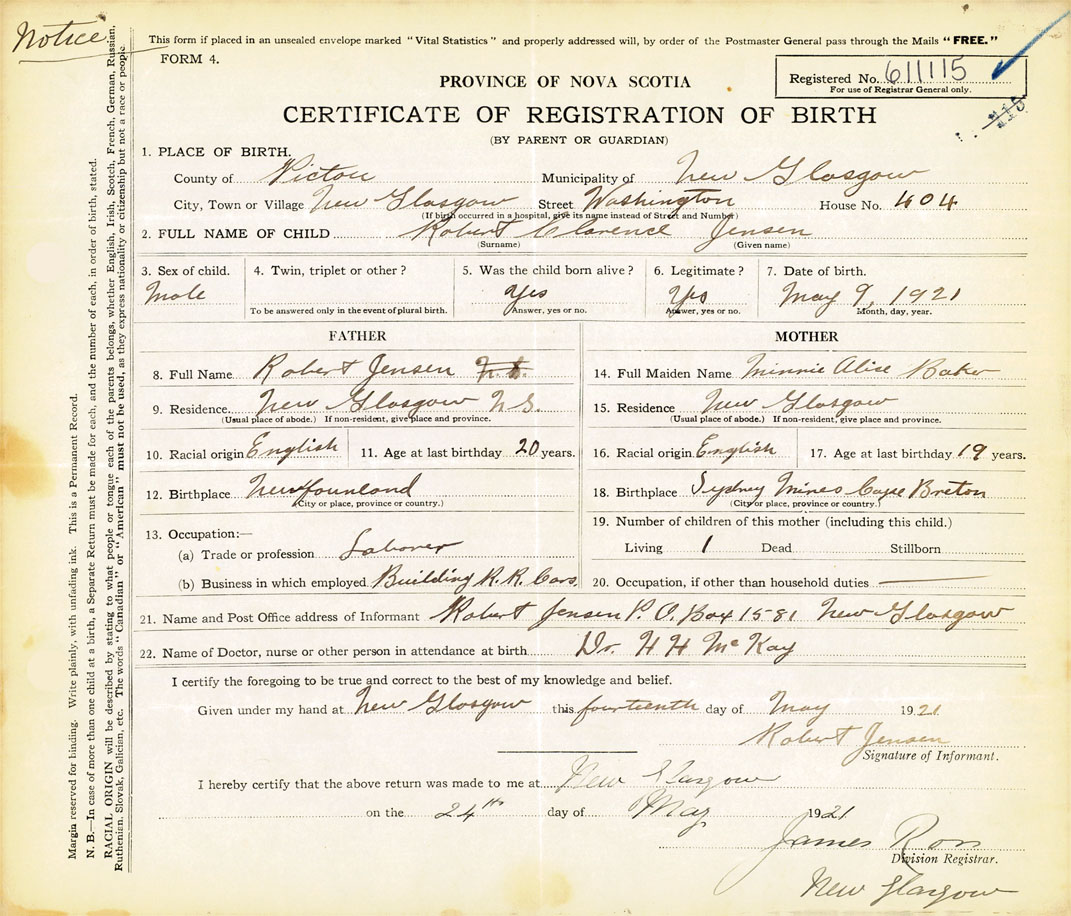 Notice
This form if placed in an unsealed envelope marked "Vital Statistics" and properly addressed will, by order of the Postmaster General pass through the Mails "FREE."
FORM 4.
Registered No. 611115
For use of Registrar General only.
PROVINCE OF NOVA SCOTIA
CERTIFICATE OF REGISTRATION OF BIRTH
(BY PARENT OR GUARDIAN)
1. PLACE OF BIRTH.
County of Pictou Municipality of New Glasgow
City, Town or Village New Glasgow Street Washington House No. 404
(If birth occurred in a hospital, give its name instead of Street and Number)
2. FULL NAME OF CHILD Robert Clarence Jensen
(Surname) (Given name)
3. Sex of child. 4. Twin, triplet or other? 5. Was the child born alive? 6. Legitimate? 7. Date of birth.
Male Yes Yes May 9, 1921
To be answered only in the event of plural birth. Answer, yes or no. Answer, yes or no. Month, day, year.
FATHER MOTHER
8. Full Name Robert Jensen N.S.
14. Full Maiden Name Minnie Alise Baker
9. Residence New Glasgow N.S.
(Usual place of abode.) If non-resident, give place and province.
15. Residence New Glasgow
(Usual place of abode.) If non-resident, give place and province.
10. Racial origin English 11. Age at last birthday 20 years.
16. Racial origin English 17. Age at last birthday 19 years.
12. Birthplace Newfounland
(City or place, province or country.)
18. Birthplace Sydney Mines Cape Breton
(City or place, province or country.)
13. Occupation:—
(a) Trade or profession Laborer
(b) Business in which employed Building R.R. Cars.
19. Number of children of this mother (including this child.)
Living 1 Dead Stillborn
20. Occupation, if other than household duties
21. Name and Post Office address of Informant Robert Jensen P.O. Box 1581 New Glasgow
22. Name of Doctor, nurse or other person in attendance at birth Dr. H H McKay
I certify the foregoing to be true and correct to the best of my knowledge and belief.
Given under my hand at New Glasgow this fourteenth day of May 1921
Robert Jensen
Signature of Informant.
I hereby certify that the above return was made to me at New Glasgow
on the 24th day of May 1921
James Ross
Division Registrar.
New Glasgow
Margin reserved for binding. Write plainly, with unfading ink. This is a Permanent Record.
N. B.—In case of more than one child at a birth, a Separate Return must be made for each, and the number of each, in order of birth, stated.
RACIAL ORIGIN will be described by stating to what people or tongue each of the parents belongs, whether English, Irish, Scotch, French, German, Russian,
Ruthenian, Slovak, Galician, etc. The words "Canadian" or "American" must not be used, as they express nationality or citizenship but not a race or people.